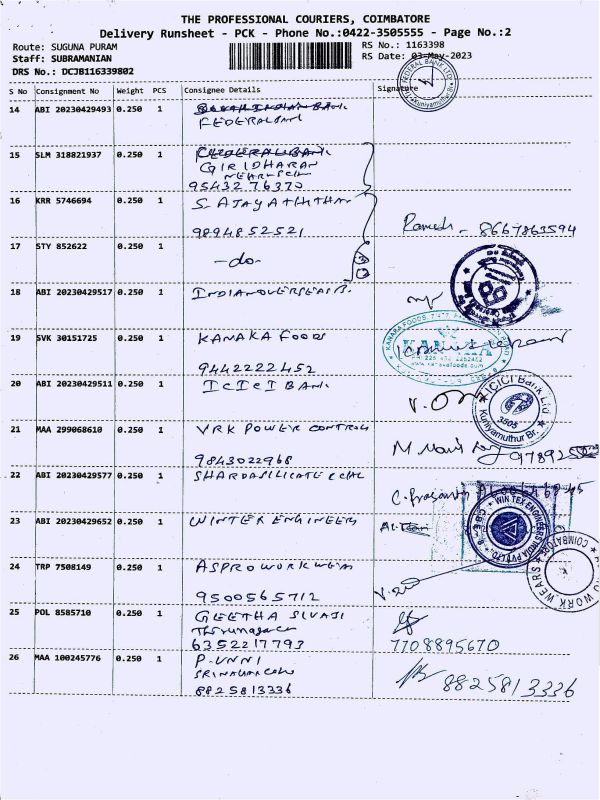 THE PROFESSIONAL COURIERS, COIMBATORE
Delivery Runsheet - PCK - Phone No.:0422-3505555 - Page No.:2
Route: SUGUNA PURAM
RS No.: 1163398
Staff: SUBRAMANIAN
RS Date: 03-May-2023
DRS No.: DCJB116339802
FEDERAL BANK LTD
Kuniyamuthur Br
S No Consignment No Weight PCS Consignee Details Signature
14 ABI 20230429493 0.250 1
FEDERAL BANK
15 SLM 318821937 0.250 1
GIRIDHARAN
95432 76370
16 KRR 5746694 0.250 1 S. AJAYAHTHAN
9894852521
Ramesh - 8667863594
17 STY 852622 0.250 1
-do-
18 ABI 20230429517 0.250 1 INDIAN OVERSEAS B.
19 SVK 30151725 0.250 1 KANAKA FOODS
9442222452
KANAKA
www.kanakafoods.com
20 ABI 20230429511 0.250 1 ICICI BANK
ICICI Bank Ltd
3505
Kuniyamuthur Br.
21 MAA 299068610 0.250 1 VRK POWER CONTROLS
9843022968
22 ABI 20230429577 0.250 1 SHARDA SILICATE &
C. Prasanth
23 ABI 20230429652 0.250 1 WINTER ENGINEERS
WINTEX ENGINEERS
24 TRP 7508149 0.250 1 ASPRO WORKWEAR
9500565712
COIMBATORE
WORK WEARS
25 POL 8585710 0.250 1 GEETHA SIVAJI
Thirunagar
6352217793
7708895670
26 MAA 100245776 0.250 1 P. UNNI
SRINAGAR COLONY
8825813336
8825813336